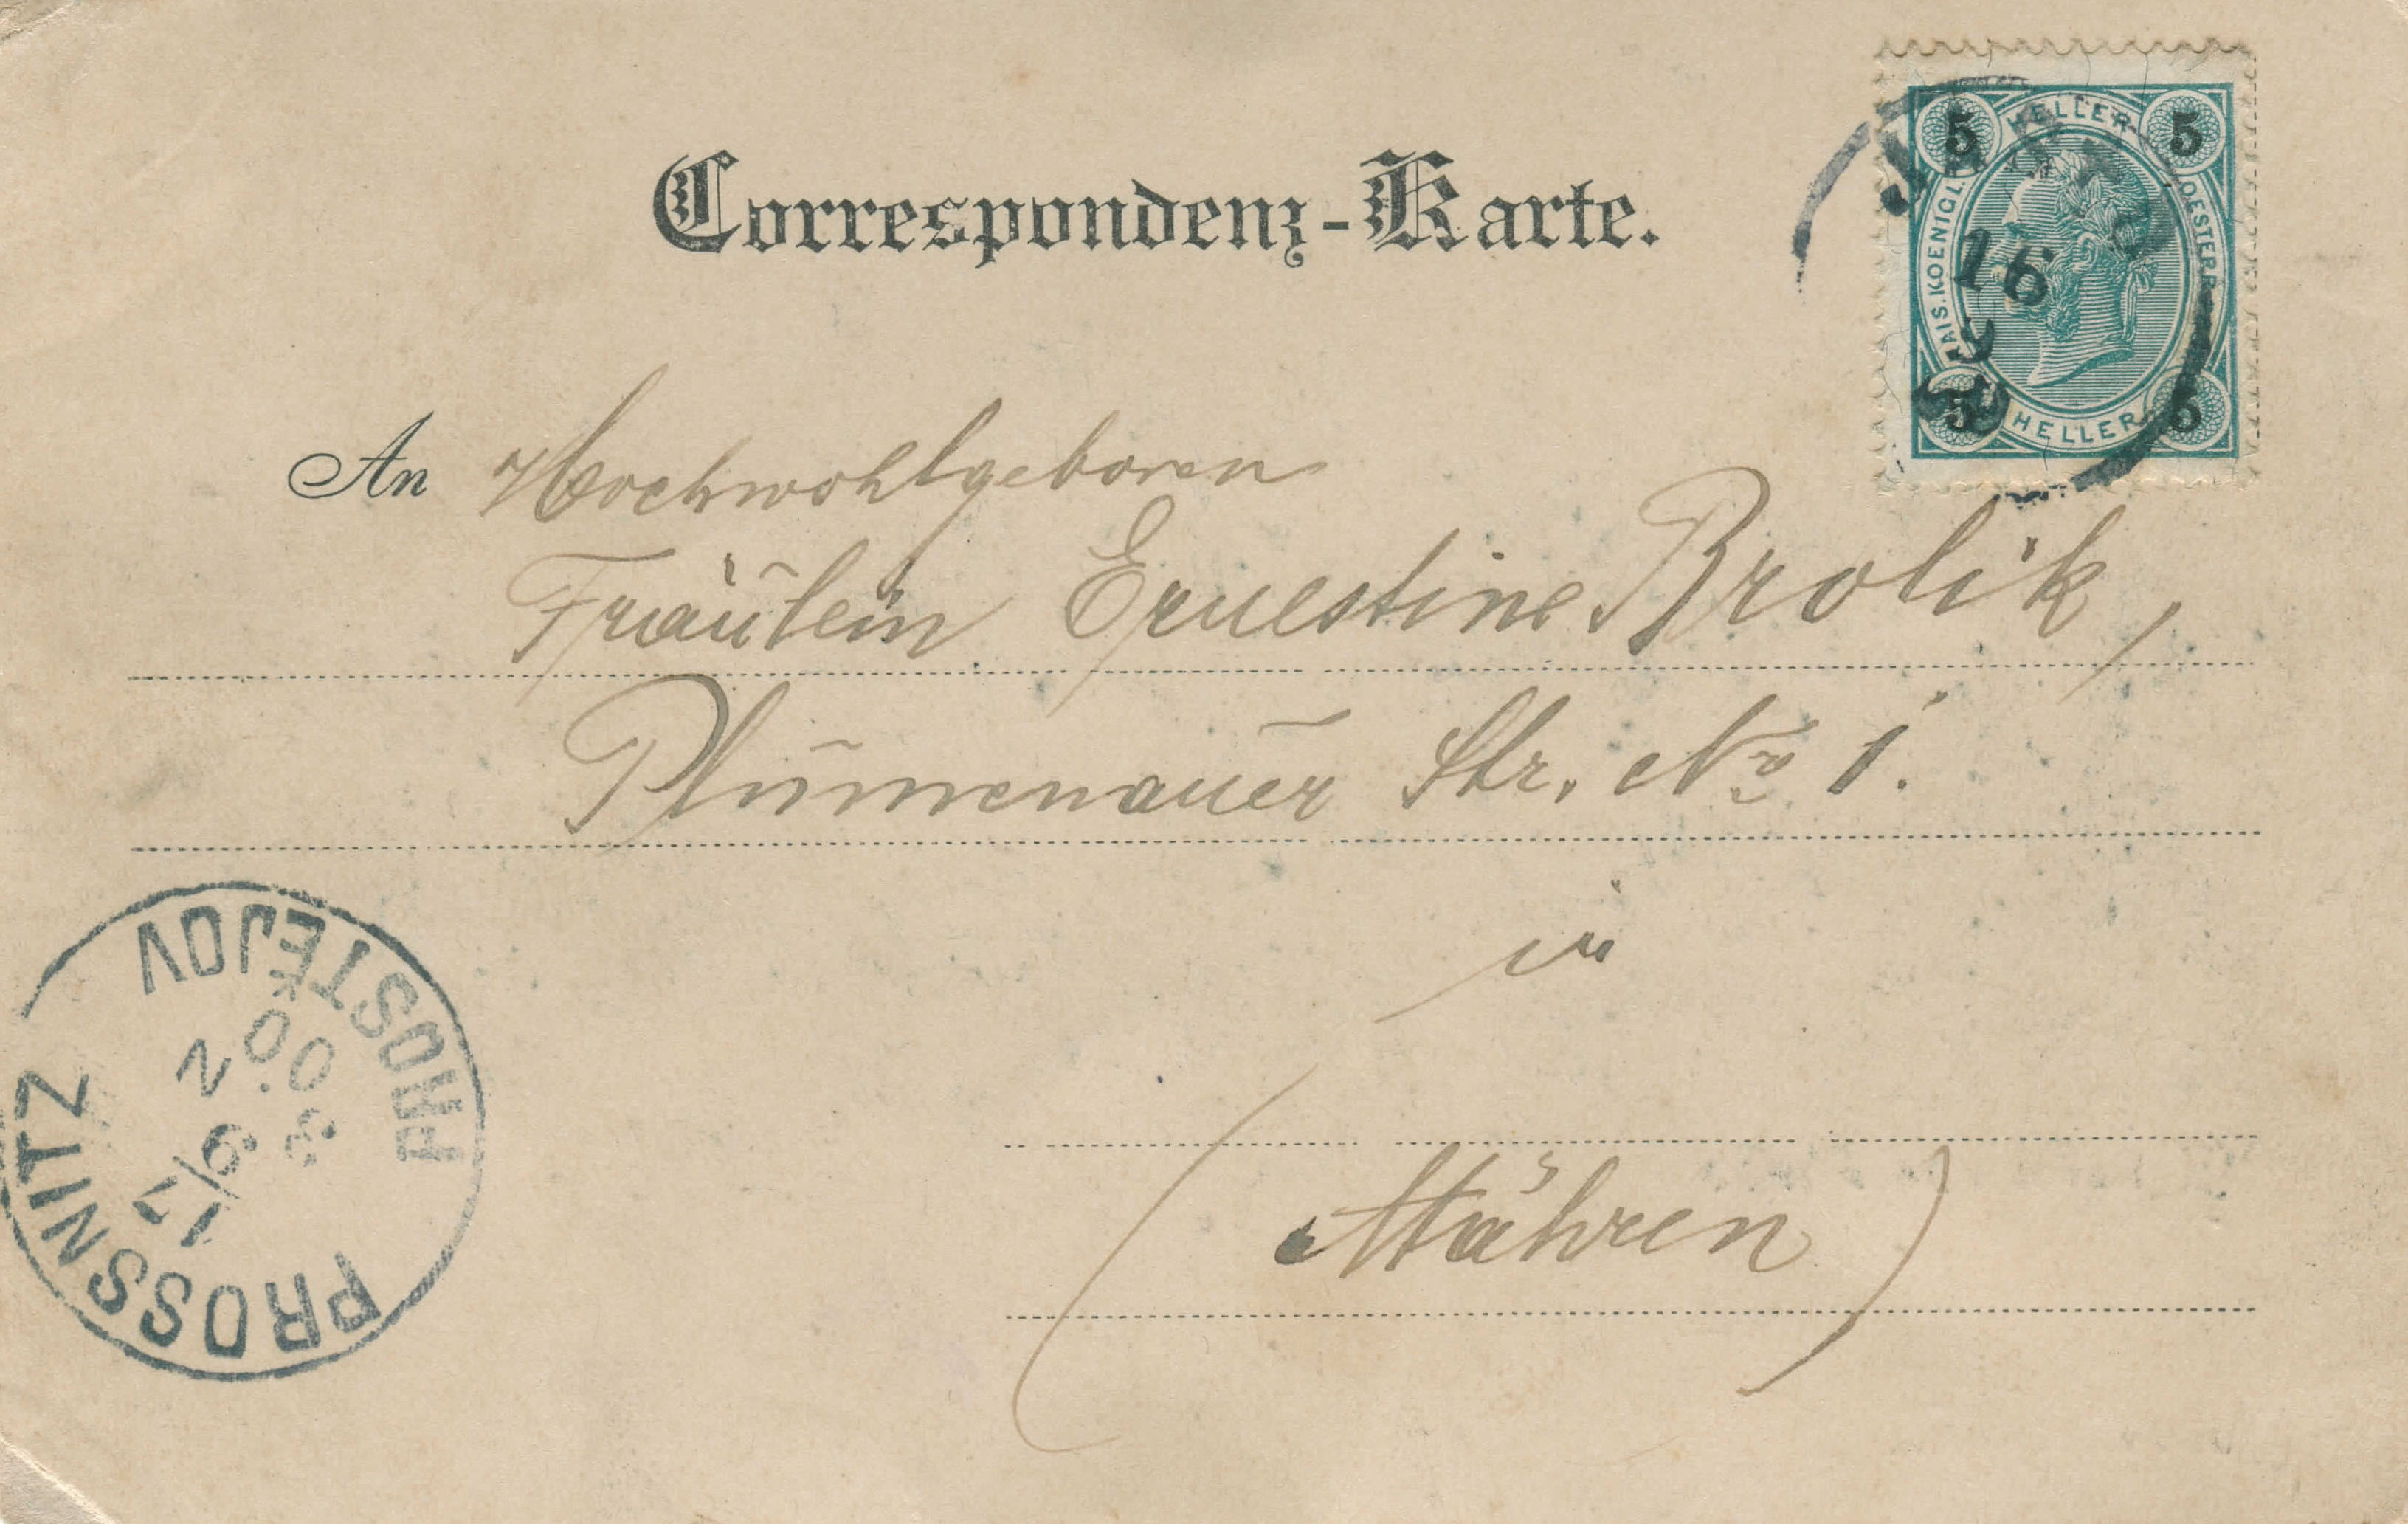 Correspondenz-Karte.
5 HELLER 5
KAIS. KOENIGL. OESTERR.
16
9
5 HELLER 5
An Hochwohlgeboren
Fräulein Ernestine Brolik,
Plumenauer Str. No 1.
in
(Mähren)
PROSSNITZ
PROSTĚJOV
17/9
00